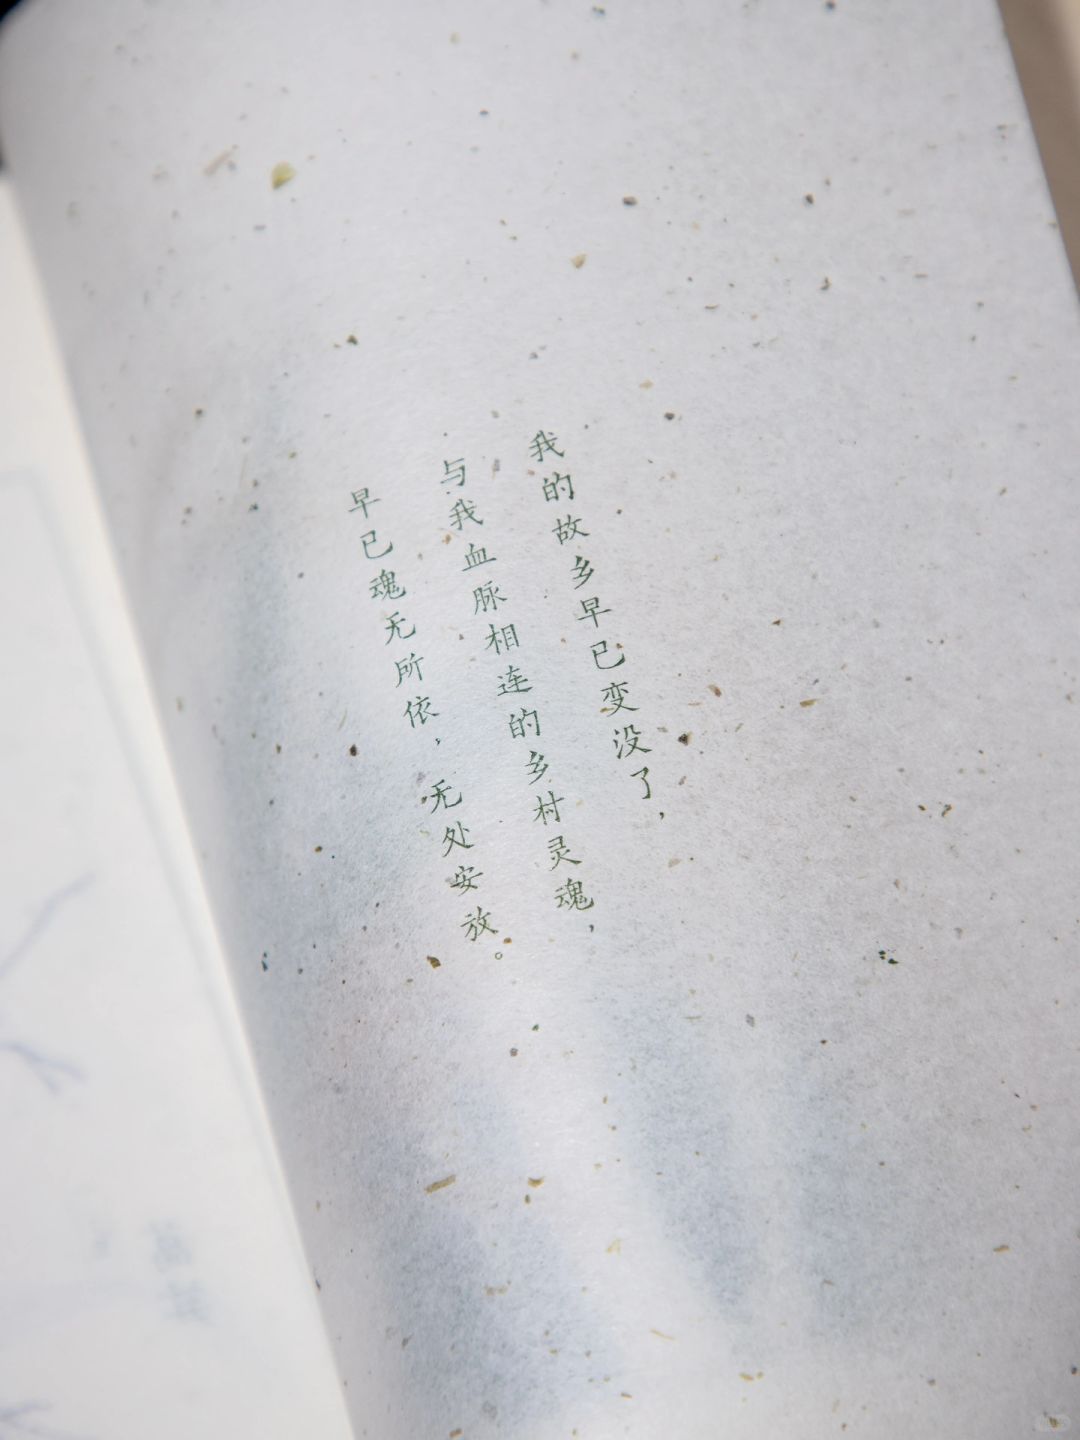 我的故乡早已变没了，
与我血脉相连的乡村灵魂，
早已魂无所依，无处安放。